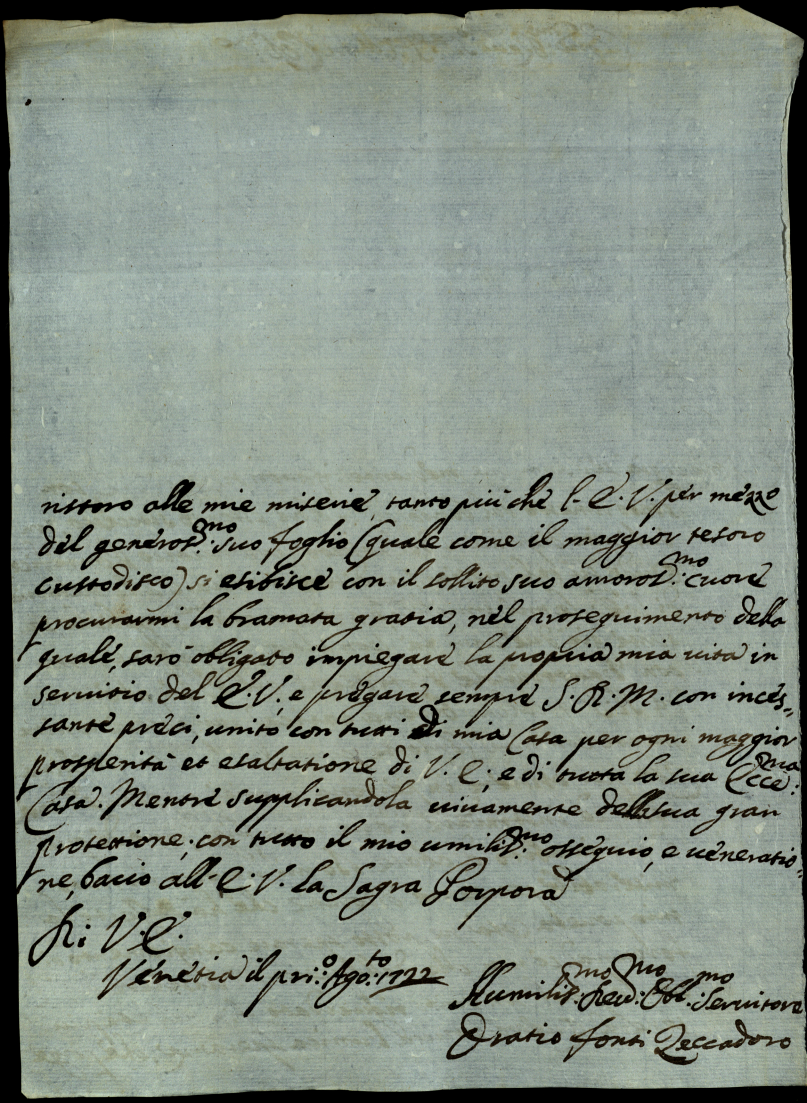 ristoro alle mie miserie, tanto più che l'E. V. per mezzo
del generos.mo suo foglio (quale come il maggior tesoro
custodisco) si esibisce con il sollito suo amoros.mo cuore
procurarmi la bramata gratia, nel proseguimento della
quale, sarò obligato impiegare la propria mia vita in
servitio del E. V., e pregare sempre S. D. M. con inces=
sante preci, unito con tutti di mia Casa per ogni maggior
prosperità et esaltatione di V. E., e di tutta la sua Ecce.ma
Casa. Mentre supplicandola vivamente della sua gran
protettione, con tutto il mio umilis.mo osseguio, e veneratio=
ne, bacio all'E. V. la Sagra Porpora
Di V. E.
Venetia il pri.o Ago.to 1722
Humilis.mo Dev.mo Obl.mo Servitore
Oratio Fonti Zeccadoro